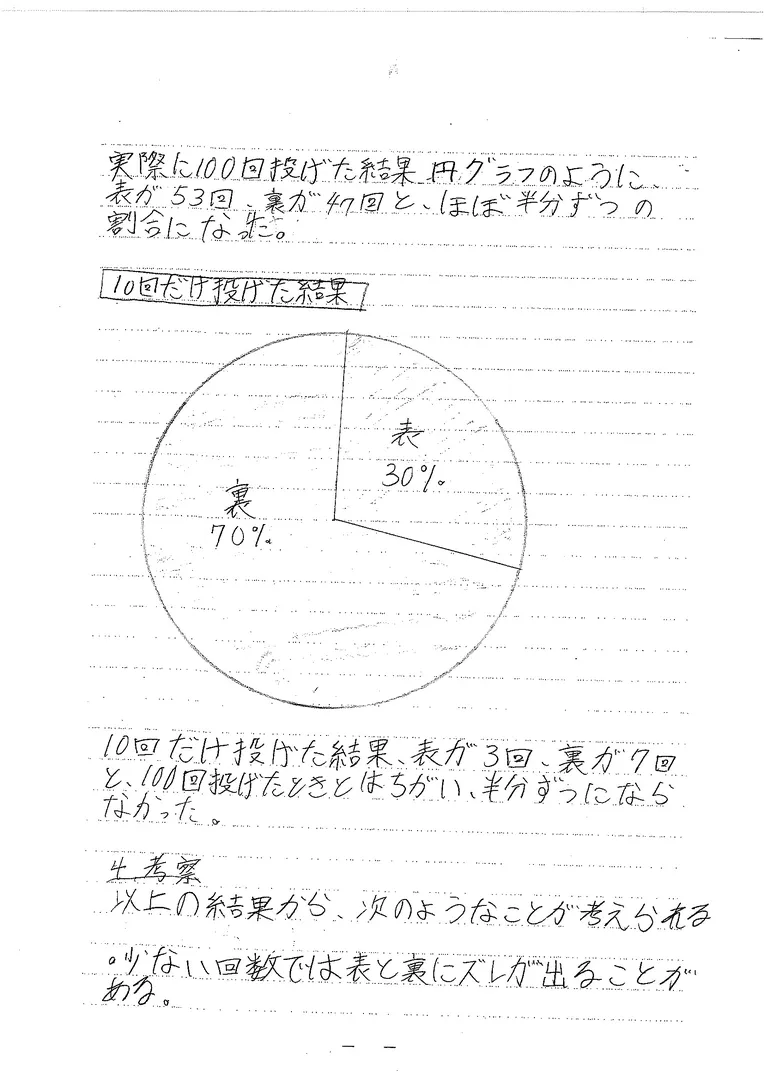 実際に100回投げた結果 円グラフのように、
表が53回、裏が47回と、ほぼ半分ずつの
割合になった。
10回だけ投げた結果
表
30%
裏
70%
10回だけ投げた結果、表が3回、裏が7回
と、100回投げたときとはちがい、半分ずつになら
なかった。
4.考察
以上の結果から、次のようなことが考えられる
。少ない回数では表と裏にズレが出ることが
ある。